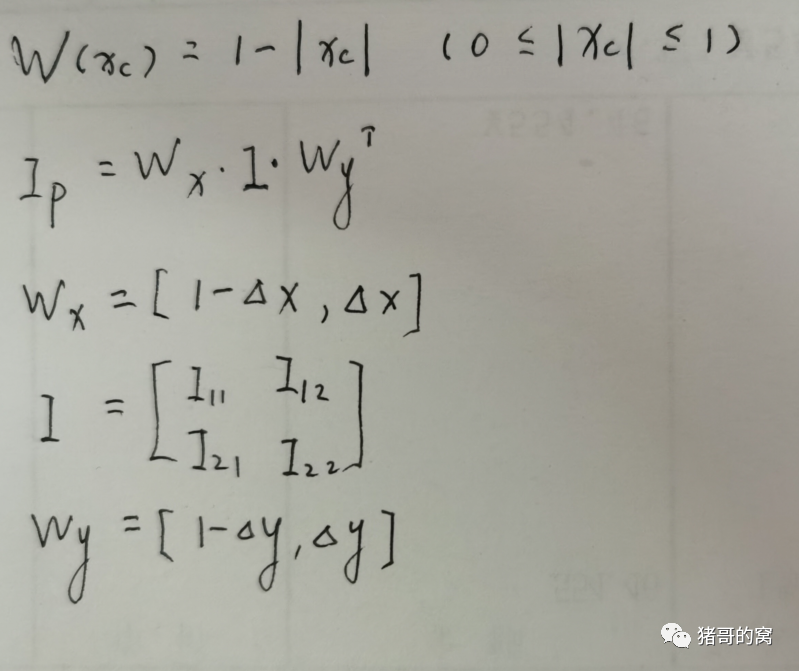 W(x_c) = 1 - |x_c| (0 ≤ |x_c| ≤ 1)
I_p = W_x · I · W_y^T
W_x = [1-Δx, Δx]
I = [I_11 I_12
I_21 I_22]
W_y = [1-Δy, Δy]
猪哥的窝